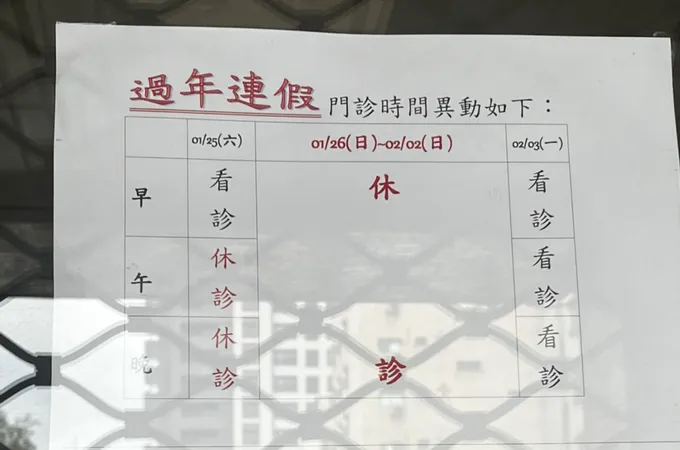 過年連假 門診時間異動如下：
01/25(六) 01/26(日)~02/02(日) 02/03(一)
早 看診 休 看診
午 休診 看診
晚 休診 診 看診